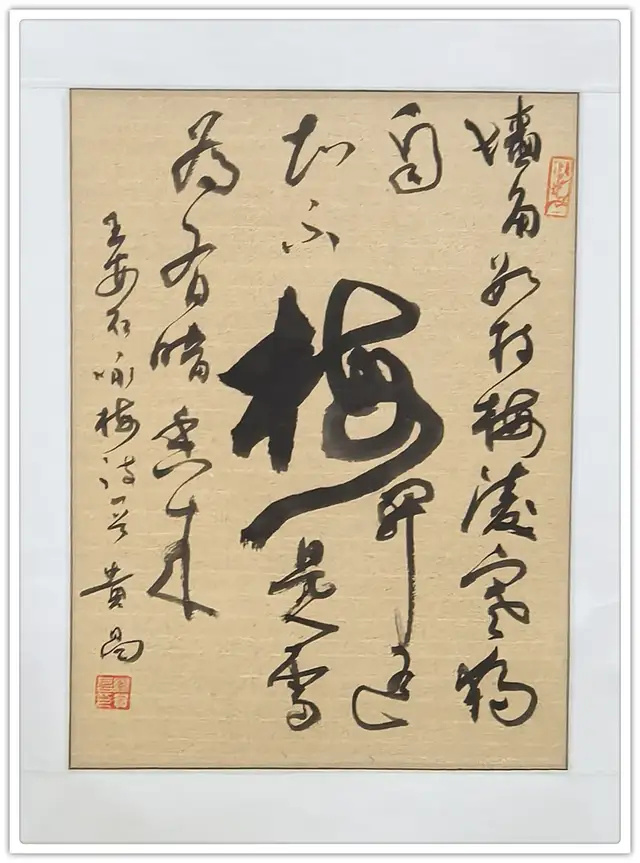 墙角数枝梅凌寒独
自开遥
知不是雪
梅
为有暗香来
王安石咏梅诗一首 贵昌